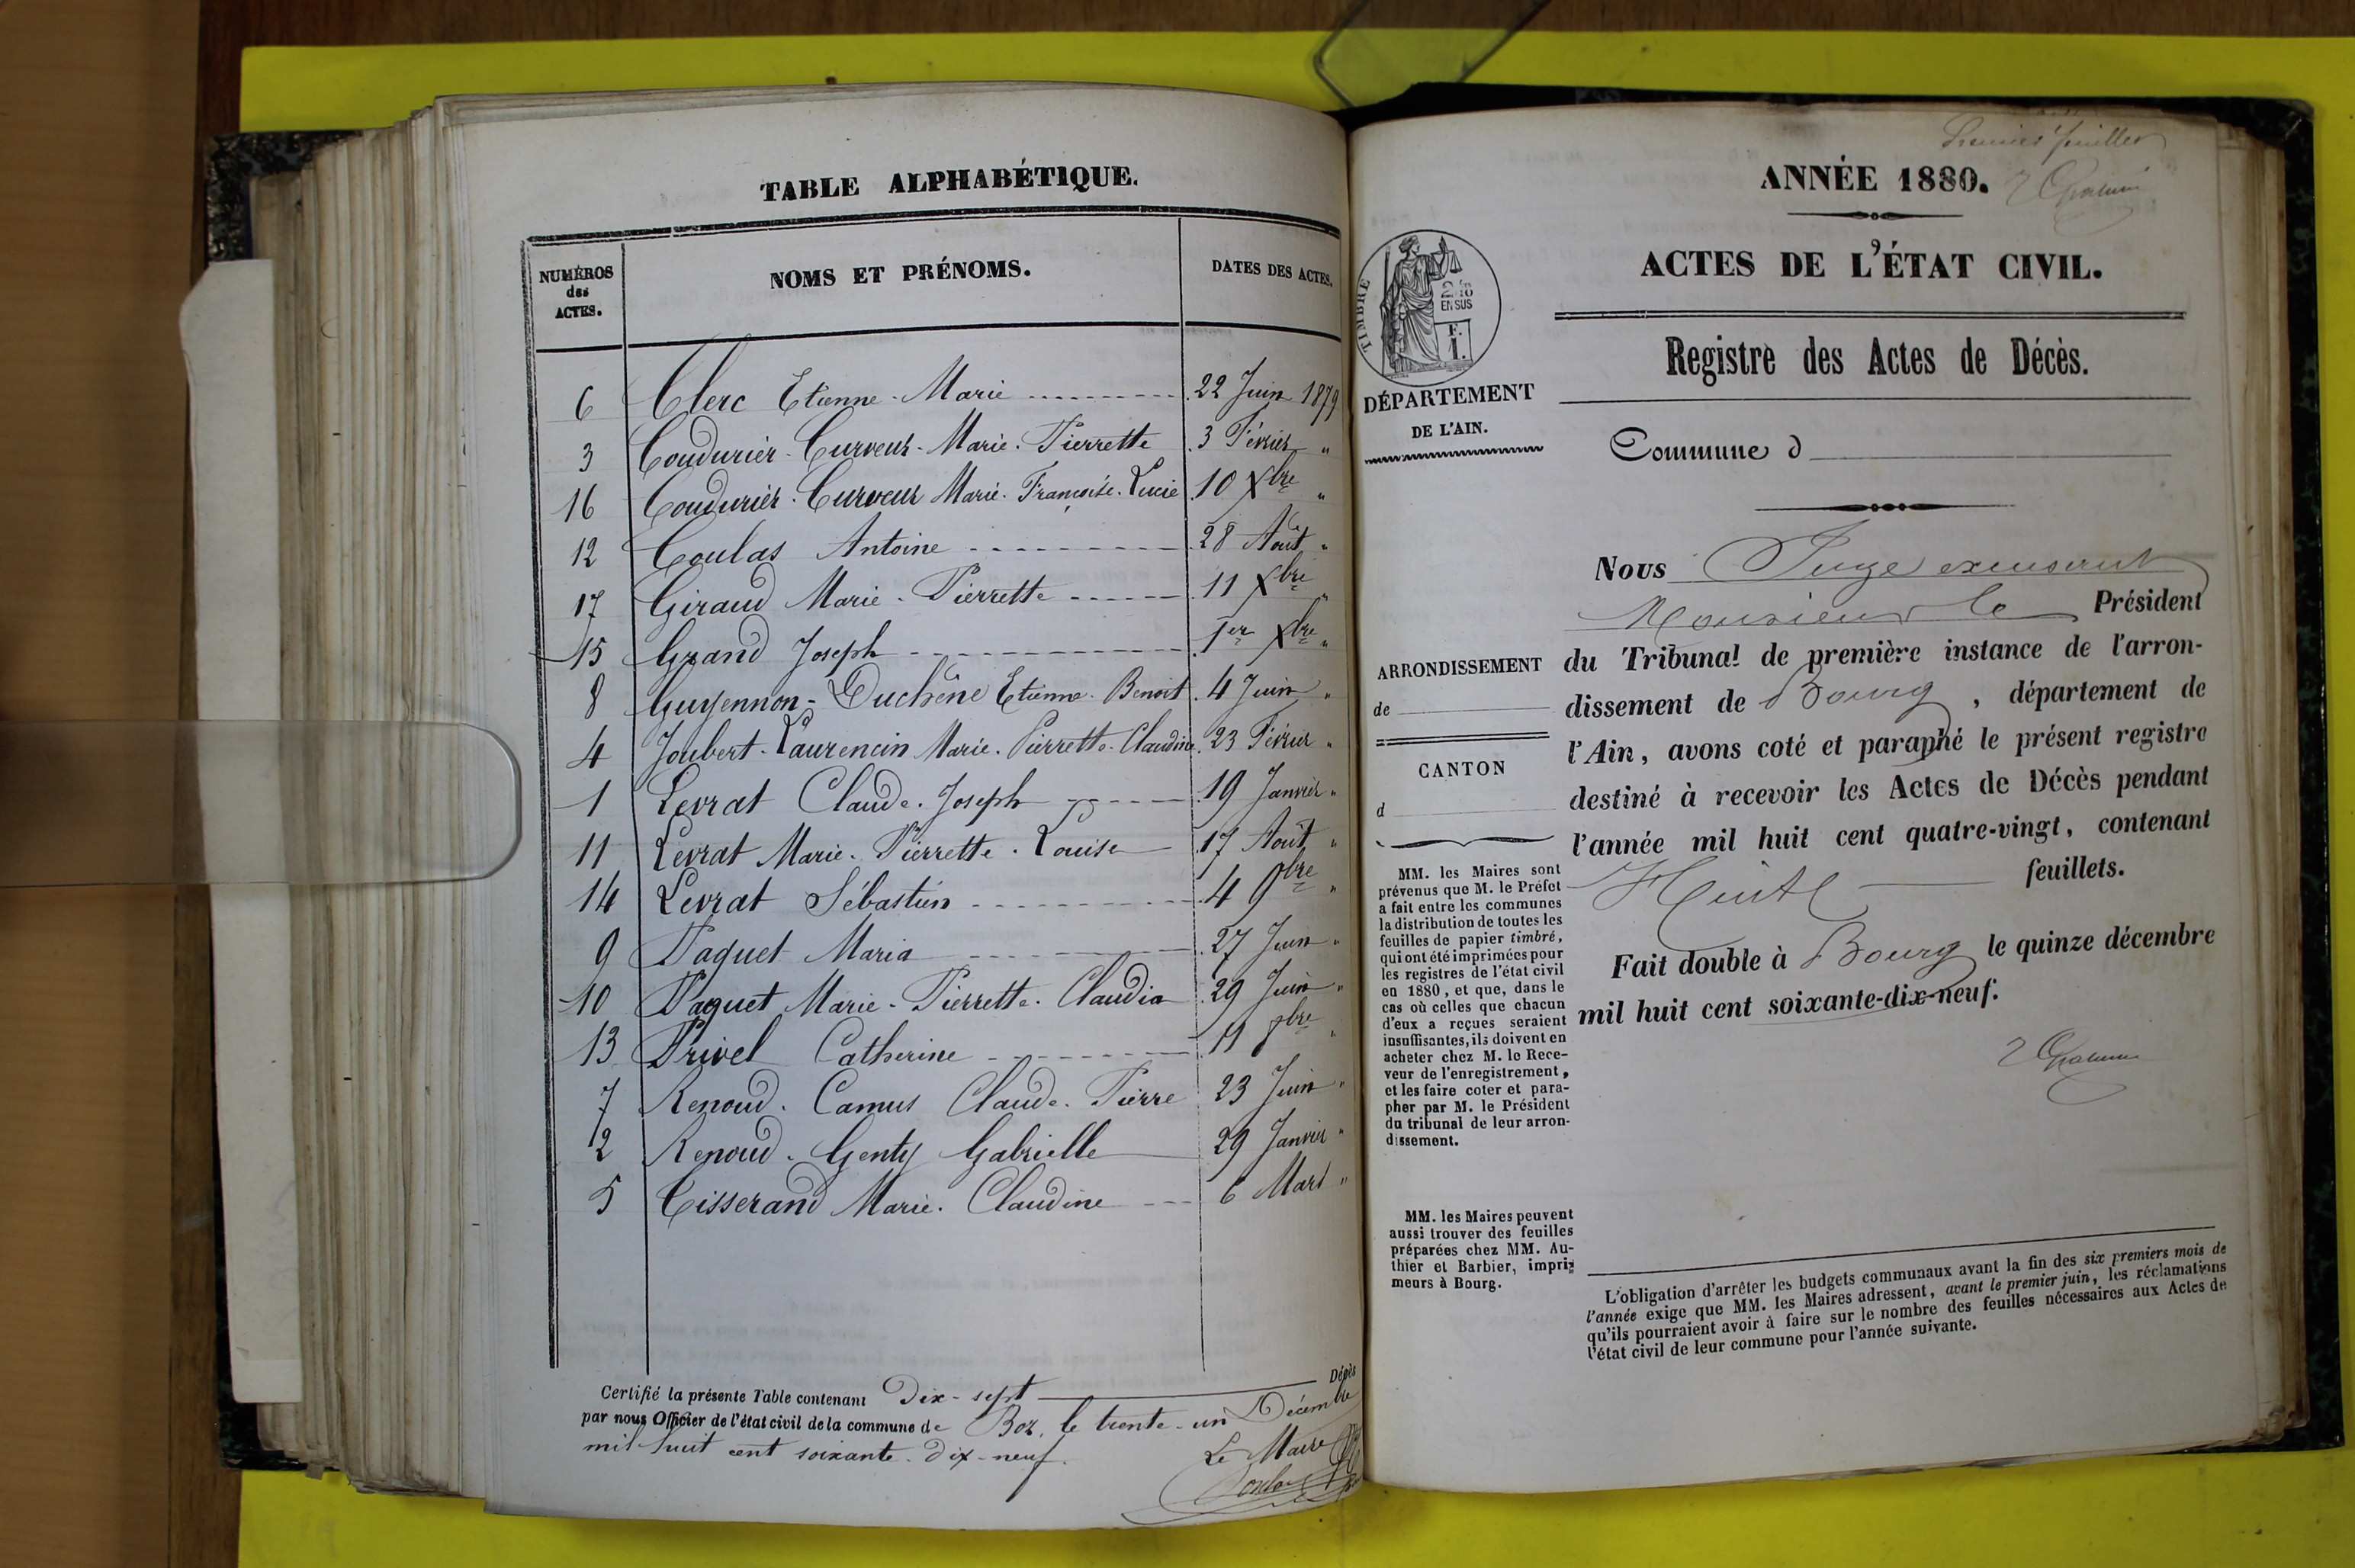 TABLE ALPHABÉTIQUE.
NUMÉROS des ACTES. NOMS ET PRÉNOMS. DATES DES ACTES.
6 Clerc Etienne-Marie 22 Juin 1879
3 Coudurier-Curveur-Marie-Pierrette 3 Février "
16 Coudurier-Curveur Marie-Françoise-Lucie 10 Xbre "
12 Coulas Antoine 28 Août "
17 Giraud Marie-Pierrette 11 Xbre "
15 Grand Joseph 1er Xbre "
8 Guyennon-Duchêne Etienne-Benoit 4 Juin "
4 Joubert-Laurencin Marie-Pierrette-Claudine 23 Février "
1 Levrat Claude-Joseph 19 Janvier "
11 Levrat Marie-Pierrette-Louise 17 Août "
14 Levrat Sébastien 4 9bre "
9 Paquet Maria 27 Juin "
10 Paquet Marie-Pierrette-Claudia 29 Juin "
13 Privel Catherine 11 8bre "
7 Renoud-Camus Claude-Pierre 23 Juin "
2 Renoud-Genty Gabrielle 29 Janvier "
5 Tisserand Marie-Claudine 6 Mars "
Certifié la présente Table contenant Dix-sept Décès
par nous Officier de l'état civil de la commune de Boz, le trente-un Décembre
mil huit cent soixante-dix-neuf.
Le Maire
Premier feuillet
ANNÉE 1880.
ACTES DE L'ÉTAT CIVIL.
Registre des Actes de Décès.
TIMBRE
2/10
EN SUS
F.
1.
DÉPARTEMENT
DE L'AIN.
Commune d
ARRONDISSEMENT
de
CANTON
d
MM. les Maires sont
prévenus que M. le Préfet
a fait entre les communes
la distribution de toutes les
feuilles de papier timbré,
qui ont été imprimées pour
les registres de l'état civil
en 1880, et que, dans le
cas où celles que chacun
d'eux a reçues seraient
insuffisantes, ils doivent en
acheter chez M. le Rece-
veur de l'enregistrement,
et les faire coter et para-
pher par M. le Président
du tribunal de leur arron-
dissement.
MM. les Maires peuvent
aussi trouver des feuilles
préparées chez MM. Au-
thier et Barbier, impri-
meurs à Bourg.
Nous Juge exerçant
Monsieur le Président
du Tribunal de première instance de l'arron-
dissement de Bourg, département de
l'Ain, avons coté et paraphé le présent registre
destiné à recevoir les Actes de Décès pendant
l'année mil huit cent quatre-vingt, contenant
Huit feuillets.
Fait double à Bourg le quinze décembre
mil huit cent soixante-dix-neuf.
L'obligation d'arrêter les budgets communaux avant la fin des six premiers mois de
l'année exige que MM. les Maires adressent, avant le premier juin, les réclamations
qu'ils pourraient avoir à faire sur le nombre des feuilles nécessaires aux Actes de
l'état civil de leur commune pour l'année suivante.